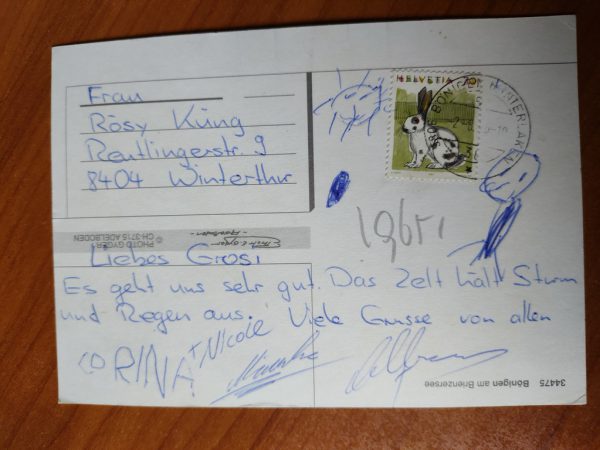 Frau
Rösy Küng
Reutlingerstr. 9
8404 Winterthur
HELVETIA
BÖNIGEN
INTERLAKEN
© PHOTO GYGER
CH-3715 ADELBODEN
Liebes Grosi
Es geht uns sehr gut. Das Zelt hält Sturm
und Regen aus. Viele Grüsse von allen
CORINA + Nicole
34475 Bönigen am Brienzersee